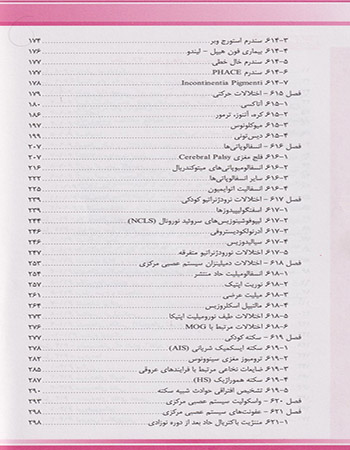 ۶۱۴-۳- سندرم استورج وبر ۱۷۴
۶۱۴-۴- بیماری فون هیپل - لیندو ۱۷۶
۶۱۴-۵- سندرم خال خطی ۱۷۷
۶۱۴-۶- سندرم PHACE ۱۷۷
۶۱۴-۷- Incontinentia Pigmenti ۱۷۸
فصل ۶۱۵ - اختلالات حرکتی ۱۷۹
۶۱۵-۱- آتاکسی ۱۸۰
۶۱۵-۲- کره، آتتوز، ترمور ۱۸۶
۶۱۵-۳- میوکلونوس ۱۹۷
۶۱۵-۴- دیس‌تونی ۱۹۹
فصل ۶۱۶ - انسفالوپاتی‌ها ۲۰۷
۶۱۶-۱- فلج مغزی Cerebral Palsy ۲۰۷
۶۱۶-۲- انسفالومیوپاتی‌های میتوکندریال ۲۱۶
۶۱۶-۳- سایر انسفالوپاتی‌ها ۲۲۲
۶۱۶-۴- انسفالیت اتوایمیون ۲۲۵
فصل ۶۱۷ - اختلالات نرودژنراتیو کودکی ۲۳۹
۶۱۷-۱- اسفنگولیپیدوزها ۲۳۹
۶۱۷-۲- لیپوفوشینوزیس‌های سروئید نورونال (NCLS) ۲۴۴
۶۱۷-۳- آدرنولکودیستروفی ۲۴۶
۶۱۷-۴- سیالیدوزیس ۲۴۶
۶۱۷-۵- اختلالات نورودژنراتیو متفرقه ۲۴۷
فصل ۶۱۸ - اختلالات دمیلینزان سیستم عصبی مرکزی ۲۵۳
۶۱۸-۱- انسفالومیلیت حاد منتشر ۲۵۴
۶۱۸-۲- نوریت اپتیک ۲۵۸
۶۱۸-۳- میلیت عرضی ۲۶۱
۶۱۸-۴- مالتیپل اسکلروزیس ۲۶۴
۶۱۸-۵- اختلالات طیف نورومیلیت اپتیکا ۲۷۳
۶۱۸-۶- اختلالات مرتبط با MOG ۲۷۶
فصل ۶۱۹ - سکته کودکی ۲۷۷
۶۱۹-۱- سکته ایسکمیک شریانی (AIS) ۲۷۸
۶۱۹-۲- ترومبوز مغزی سینوونوس ۲۸۲
۶۱۹-۳- ضایعات نخاعی مرتبط با فرایندهای عروقی ۲۸۵
۶۱۹-۴- سکته هموراژیک (HS) ۲۸۷
۶۱۹-۵- تشخیص افتراقی حوادث شبیه سکته ۲۹۰
فصل ۶۲۰ - واسکولیت سیستم عصبی مرکزی ۲۹۳
فصل ۶۲۱ - عفونت‌های سیستم عصبی مرکزی ۲۹۸
۶۲۱-۱- مننژیت باکتریال حاد بعد از دوره نوزادی ۲۹۸